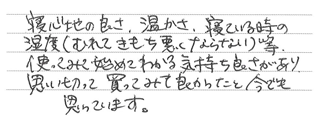 寝心地の良さ、温かさ、寝ている時の
湿度(むれてきもち悪くならない)等、
使ってみて始めてわかる気持ち良さがあり
思い切って買ってみて良かったと今でも
思っています。